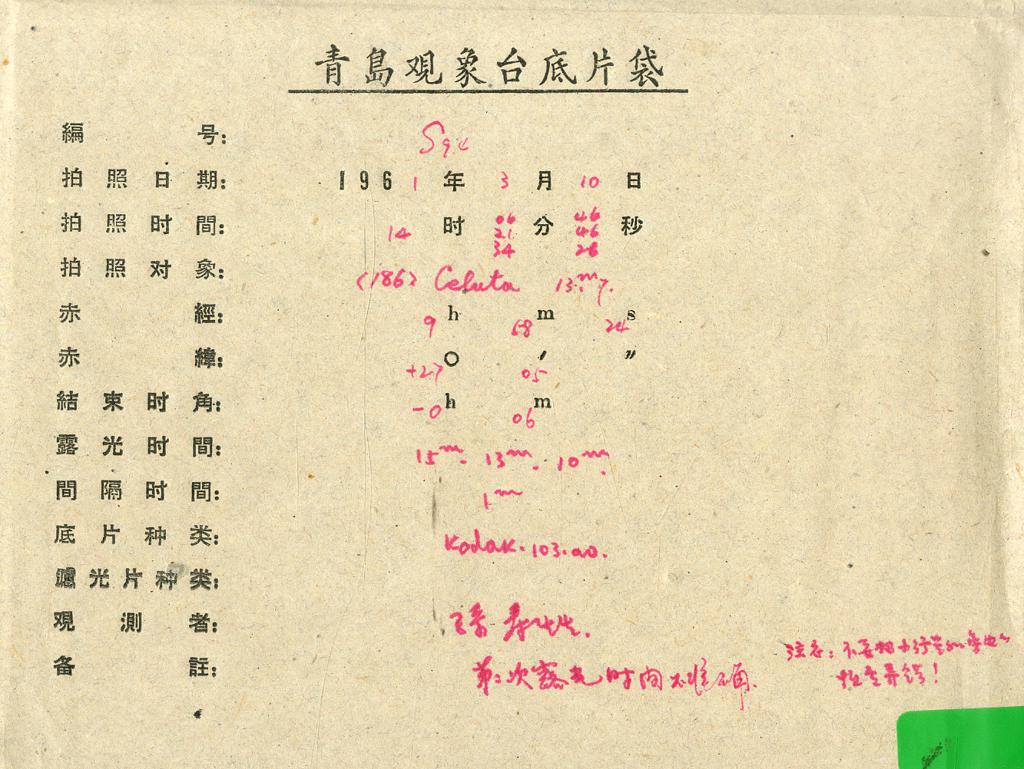 青島观象台底片袋
編号:
拍照日期: 1961年3月10日
拍照时間: 14时 06分46秒
21 46
34 26
拍照对象: (186) Celuta 13.m7.
赤經: 9h 58m 24s
赤緯: +27° 05′ ″
結束时角: -0h 06m
露光时間: 15m. 13m. 10m.
間隔时間: 1m
底片种类: Kodak.103.ao.
濾光片种类:
观測者:
备註: 第二次露光时间不准确.
注意: 不要